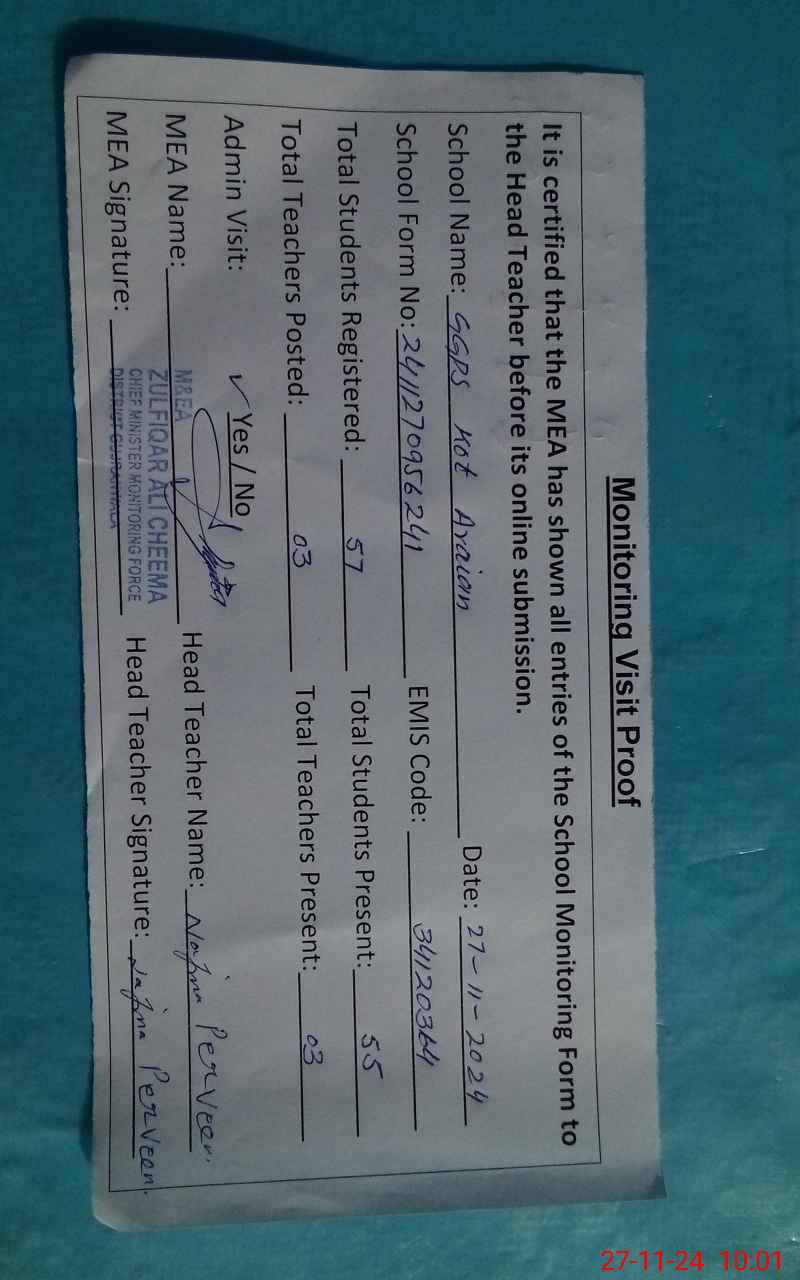 Monitoring Visit Proof
It is certified that the MEA has shown all entries of the School Monitoring Form to
the Head Teacher before its online submission.
School Name: GGPS Kot Araian Date: 27-11-2024
School Form No: 2411270956241 EMIS Code: 34120364
Total Students Registered: 57 Total Students Present: 55
Total Teachers Posted: 03 Total Teachers Present: 03
Admin Visit: ✓ Yes / No
MEA Name: Head Teacher Name: Najma Perveen.
MEA Signature: Head Teacher Signature: Najma Perveen.
M&EA
ZULFIQAR ALI CHEEMA
CHIEF MINISTER MONITORING FORCE
DISTRICT GUJRANWALA
27-11-24 10:01